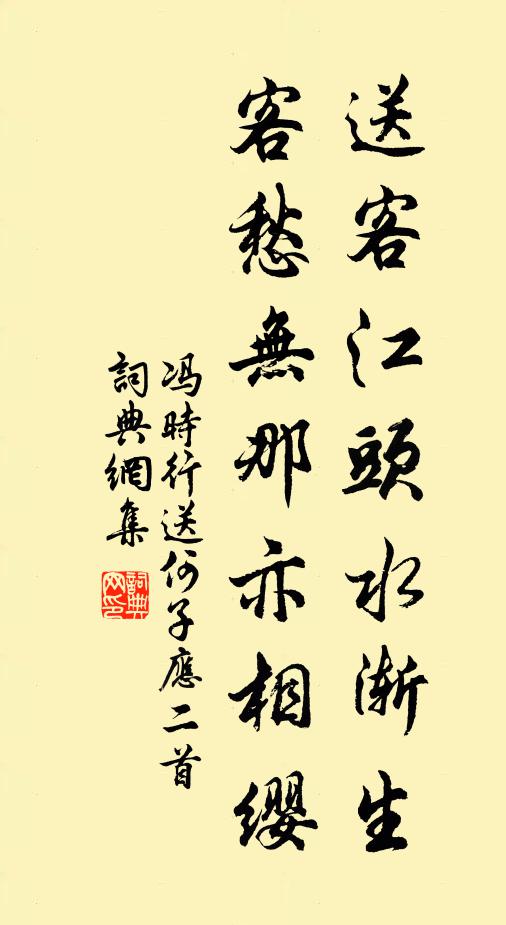 送客江頭水渐生
客愁無那亦相缨
冯時行送何子應二首
詞典網集
詞典网印